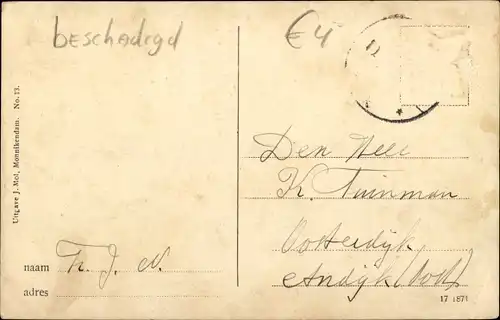 beschadigd
€ 4
Den Heer
K. Tuinman
Oosterdijk
Andijk (Oost)
Uitgave J. Mol, Monnikendam. No. 13.
naam Th. J. N.
adres
17 1871